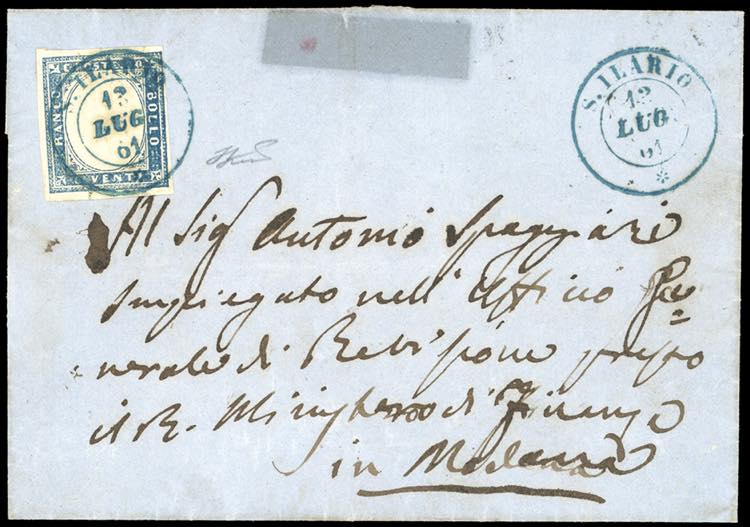 FRANCO BOLLO
VENTI
S. ILARIO
13
LUG
61
S. ILARIO
13
LUG
61
Al Sig Antonio Spaggiari
Impiegato nell' Officio Ge=
nerale di Revisione presso
il R. Ministero di Finanze
in Modena